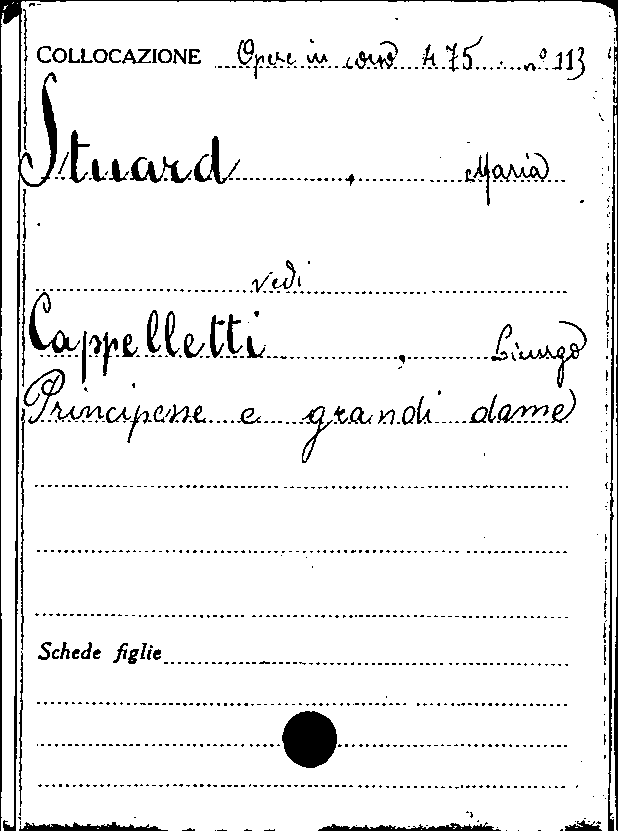 COLLOCAZIONE Opere in corso 475 n° 113
Stuard, Maria
vedi
Cappelletti, Licurgo
Principesse e grandi dame
Schede figlie